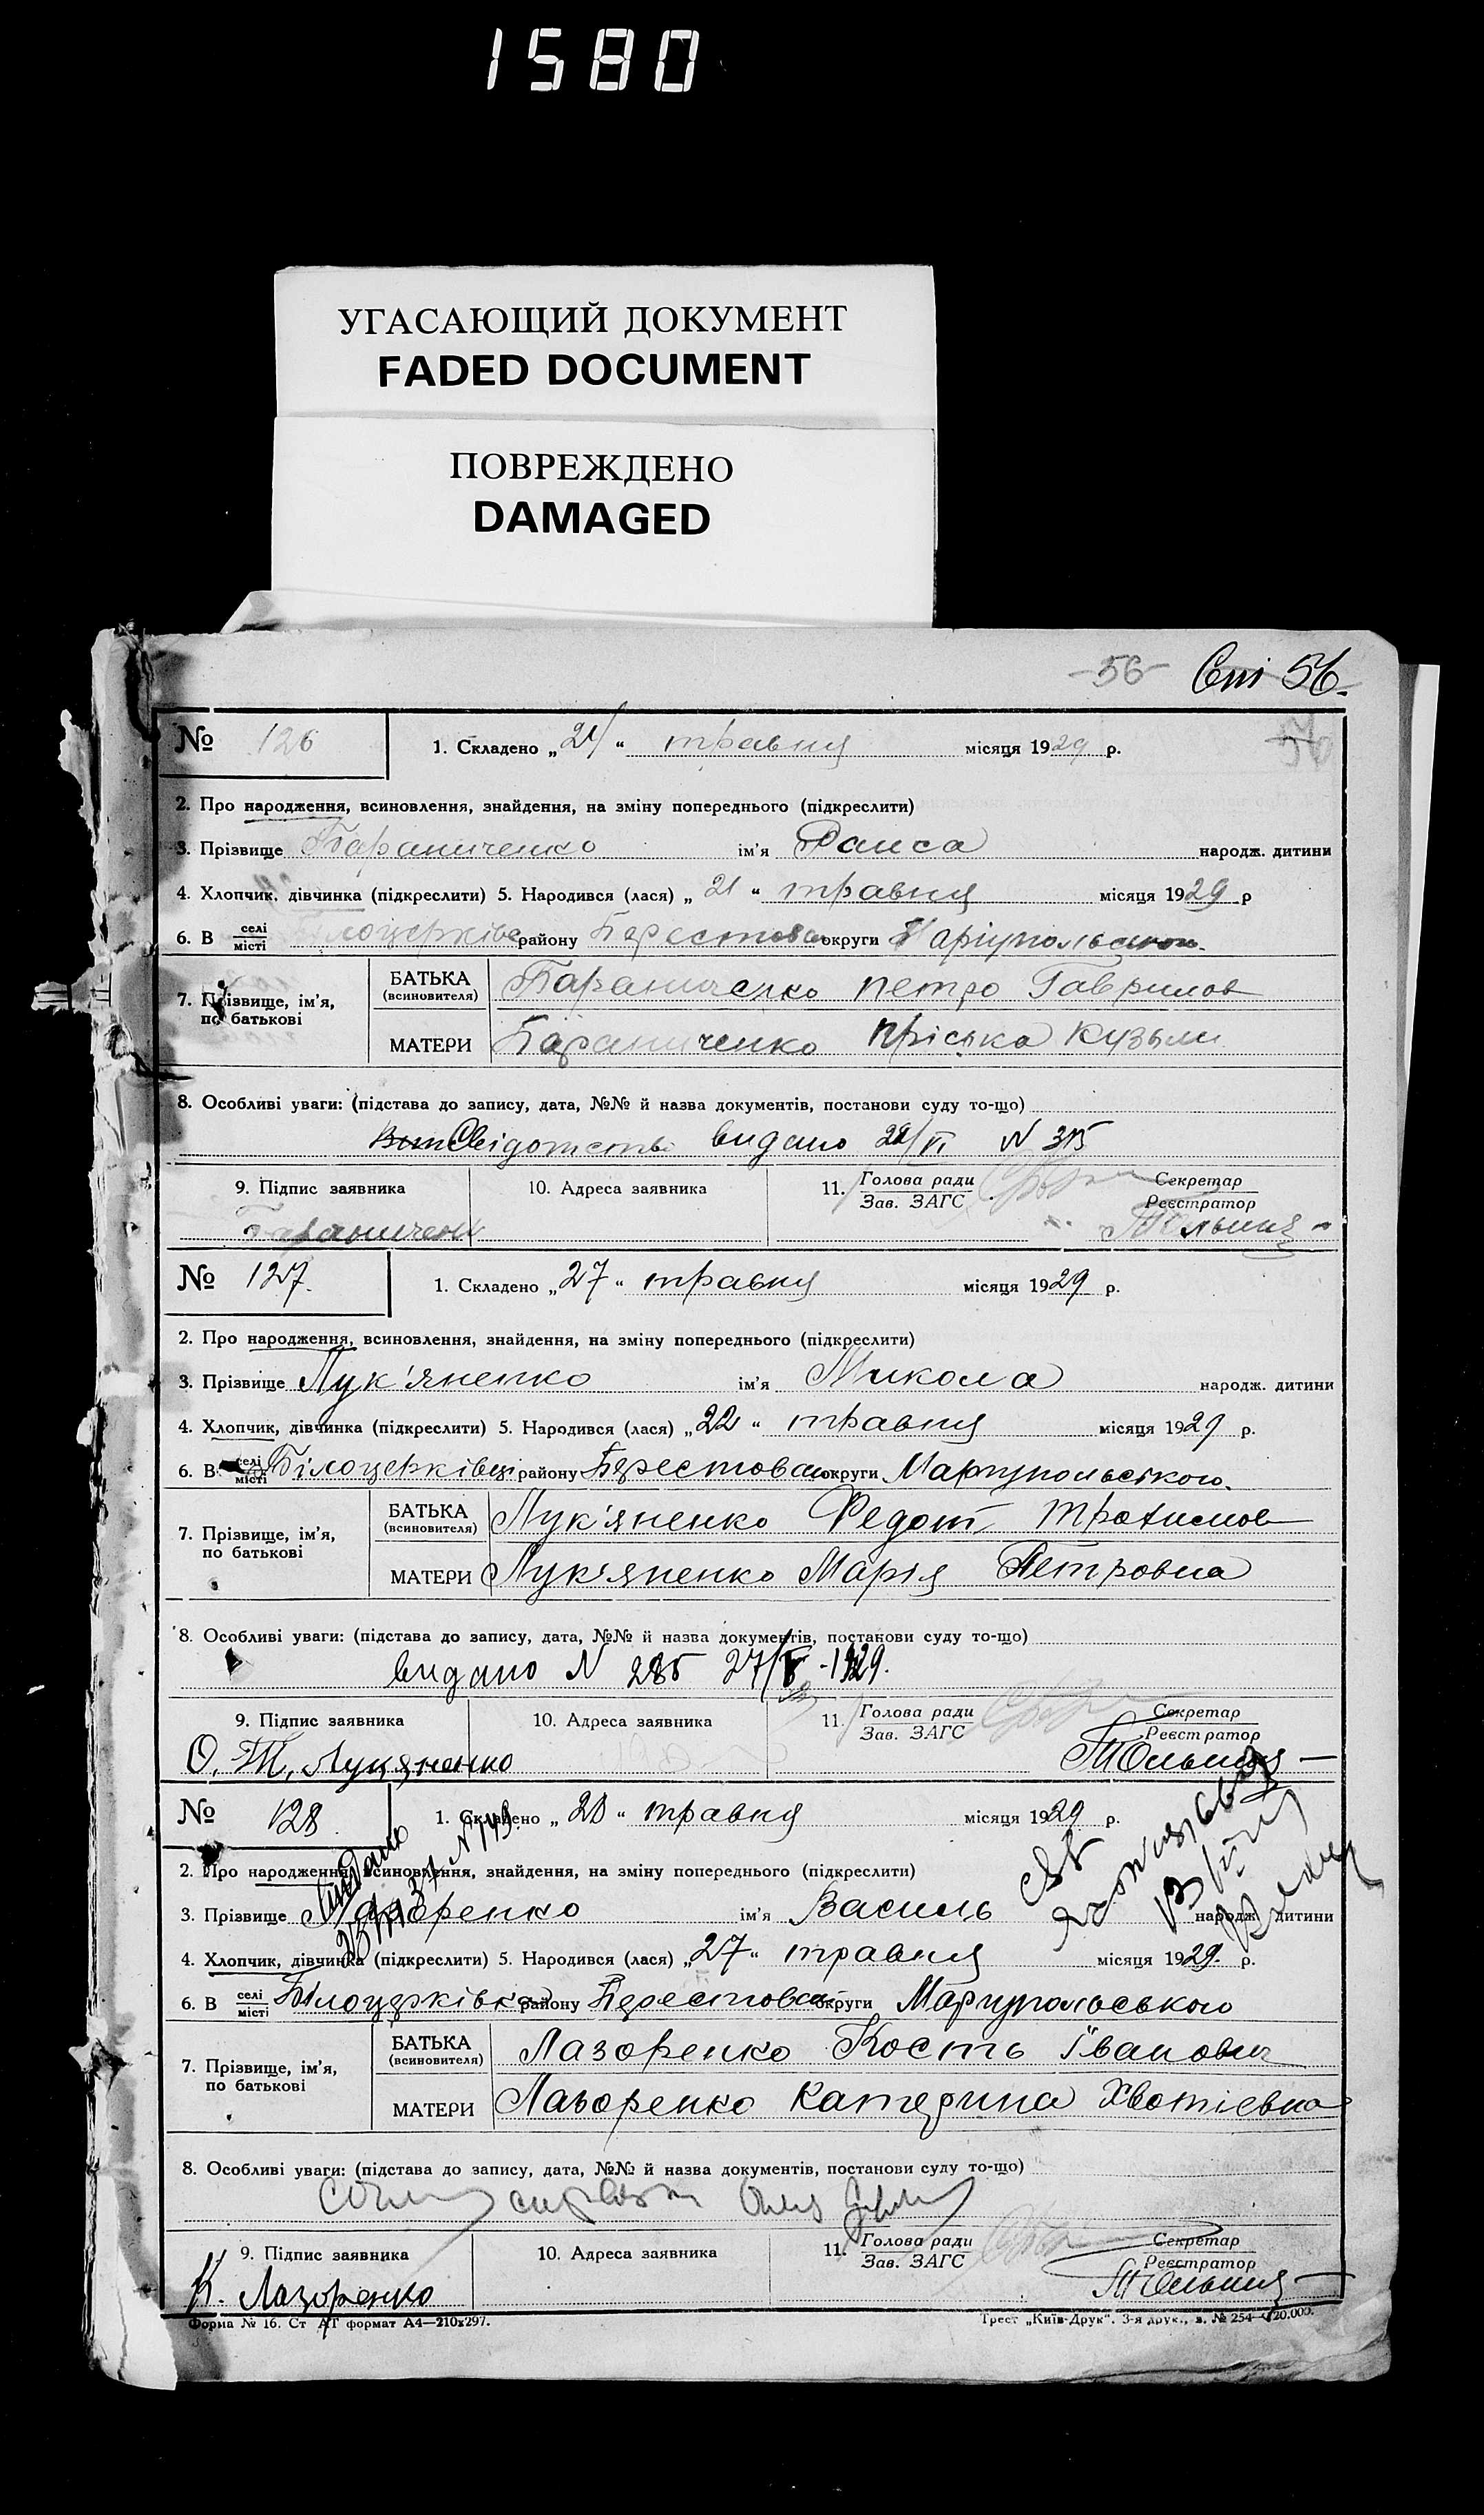 1580
УГАСАЮЩИЙ ДОКУМЕНТ
FADED DOCUMENT
ПОВРЕЖДЕНО
DAMAGED
-56- 56.
№ 126 1. Складено „ “ травня місяця 1929 р.
2. Про народження, всиновлення, знайдення, на зміну попереднього (підкреслити)
3. Прізвище Бараниченко ім'я Раиса народж. дитини
4. Хлопчик, дівчинка (підкреслити) 5. Народився (лася) „ 21 “ травня місяця 1929 р
6. В селі місті району Берестова округи Маріупольской.
7. Прізвище, ім'я, по батькові
БАТЬКА (всиновителя) Бараниченко петро Гаврилов
МАТЕРИ Бараниченко пріська Кузьми
8. Особливі уваги: (підстава до запису, дата, №№ й назва документів, постанови суду то-що)
Свідотство видано /VI N 315
9. Підпис заявника 10. Адреса заявника 11. Голова ради Зав. ЗАГС Секретар Реєстратор
Бараничен
№ 127. 1. Складено „ 27 “ травня місяця 1929 р.
2. Про народження, всиновлення, знайдення, на зміну попереднього (підкреслити)
3. Прізвище Лук'яненко ім'я Микола народж. дитини
4. Хлопчик, дівчинка (підкреслити) 5. Народився (лася) „ 22 “ травня місяця 1929 р.
6. В селі місті Білоцерківці району Берестова округи Маріупольского.
7. Прізвище, ім'я, по батькові
БАТЬКА (всиновителя) Лук'яненко Федот Трохимов
МАТЕРИ Лук'яненко Марія Петровна
8. Особливі уваги: (підстава до запису, дата, №№ й назва документів, постанови суду то-що)
видано N 285 27/V-1929.
9. Підпис заявника 10. Адреса заявника 11. Голова ради Зав. ЗАГС Секретар Реєстратор
Лукяненко
№ 128 1. Складено „ 28 “ травня місяця 1929 р.
2. Про народження, всиновлення, знайдення, на зміну попереднього (підкреслити)
3. Прізвище Лазоренко ім'я Василь народж. дитини
4. Хлопчик, дівчинка (підкреслити) 5. Народився (лася) „ 27 “ травня місяця 1929. р.
6. В селі місті Білоцерківка району Берестова округи Маріупольського
7. Прізвище, ім'я, по батькові
БАТЬКА (всиновителя) Лазоренко Кость Іванович
МАТЕРИ Лазоренко Катерина Хвотіевна
8. Особливі уваги: (підстава до запису, дата, №№ й назва документів, постанови суду то-що)
9. Підпис заявника 10. Адреса заявника 11. Голова ради Зав. ЗАГС Секретар Реєстратор
К. Лазоренко
Форма № 16. Ст АТ формат А4—210x297. Трест „Київ-Друк". 3-я друк., з. № 254— 20.000.